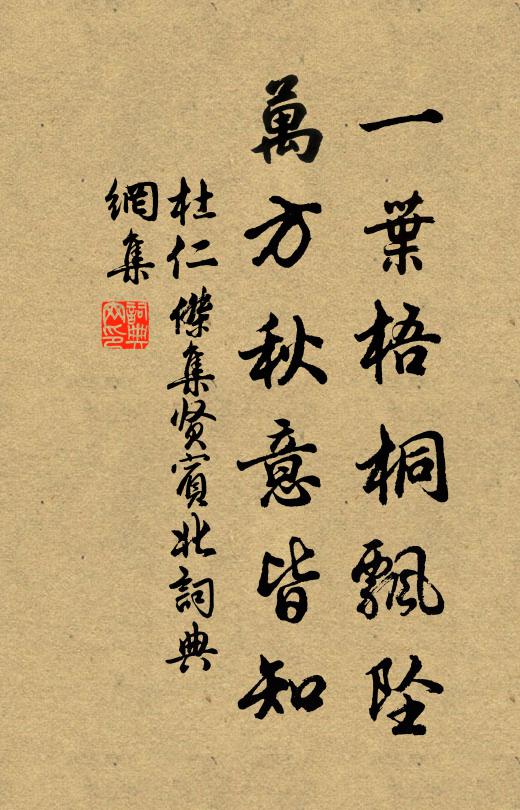 一葉梧桐飄墜
萬方秋意皆知
杜仁傑集賢賓北詞典
網集
詞典網印